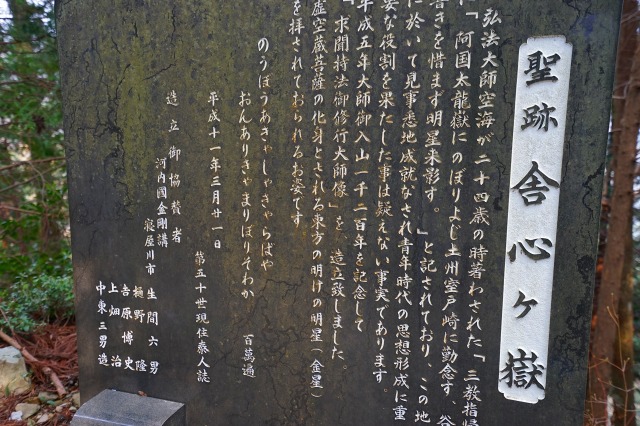 聖跡 舎心ヶ嶽
弘法大師空海が二十四歳の時著わされた「三教指帰
に「阿国太龍嶽にのぼりよじ土州室戸崎に勤念す、谷
響きを惜まず明星来影す。」と記されており、この地
に於いて見事悉地成就なされ青年時代の思想形成に重
要な役割を果たした事は疑えない事実であります。
平成五年大師御入山一千二百年を記念して
「求聞持法御修行大師像」を造立致しました。
虚空蔵菩薩の化身とされる東方の明けの明星(金星)
を拝されておられるお姿です
のうぼうあきゃしゃきゃらばや
おんありきゃまりぼりそわか 百萬遍
平成十一年三月廿一日
第五十世現住泰人誌
造立御協賛者
河内國金剛講
寝屋川市 生間六男
樋野隆
吉原博史
上畑治
中東三男